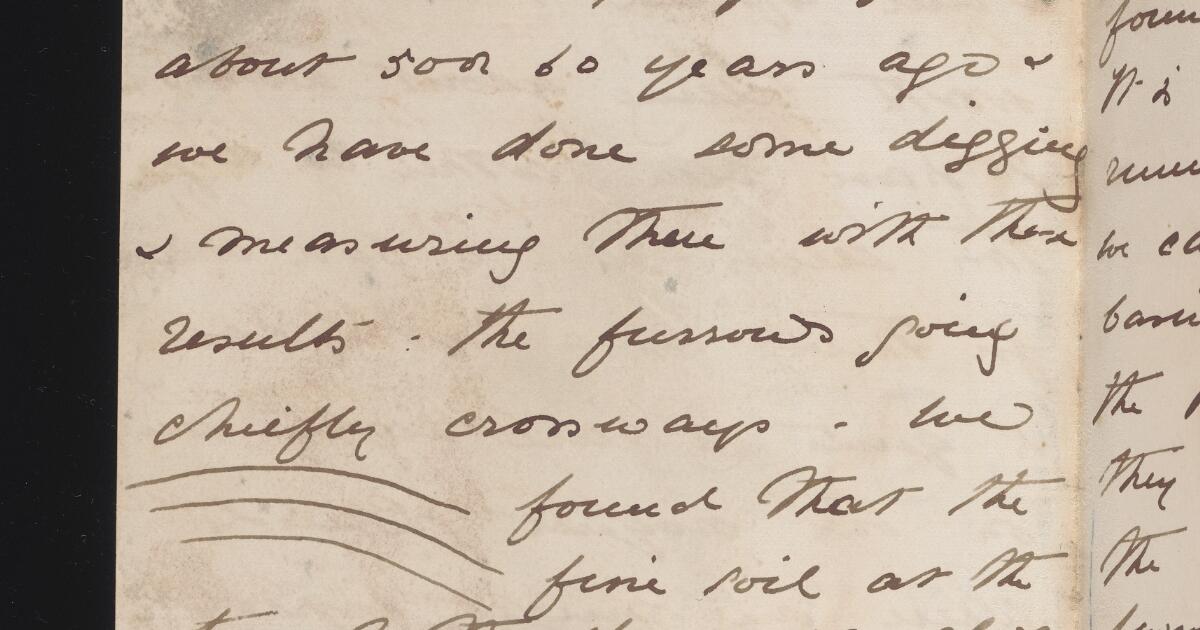 about 50 or 60 years ago &
we have done some digging
& measuring there with these
results - the furrows going
chiefly crossways - we
found that the
fine soil at the
It is
we
the
they
the